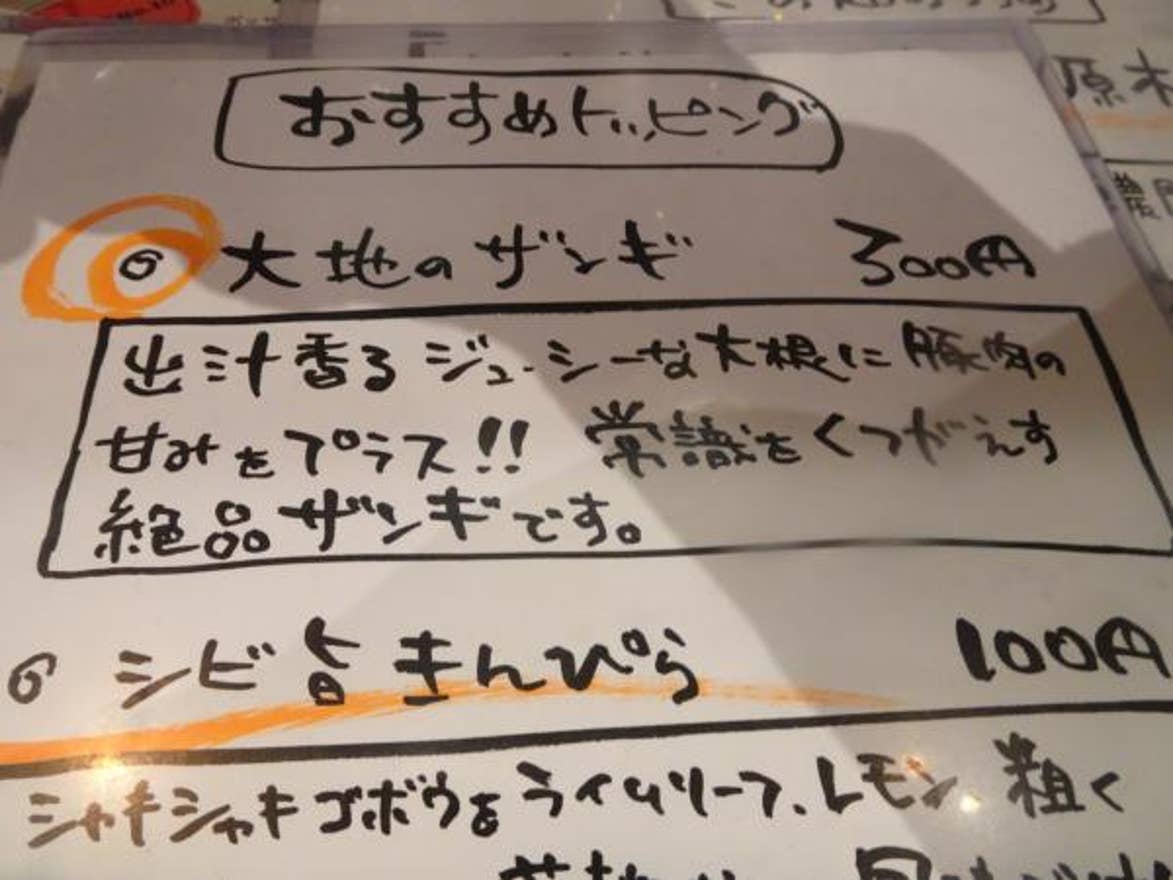 おすすめトッピング
◎ 大地のザンギ 300円
出汁香るジューシーな大根に豚肉の
甘みをプラス!! 常識をくつがえす
絶品ザンギです。
◎ シビ旨きんぴら 100円
シャキシャキゴボウをライムリーフ、レモン、粗く
原木